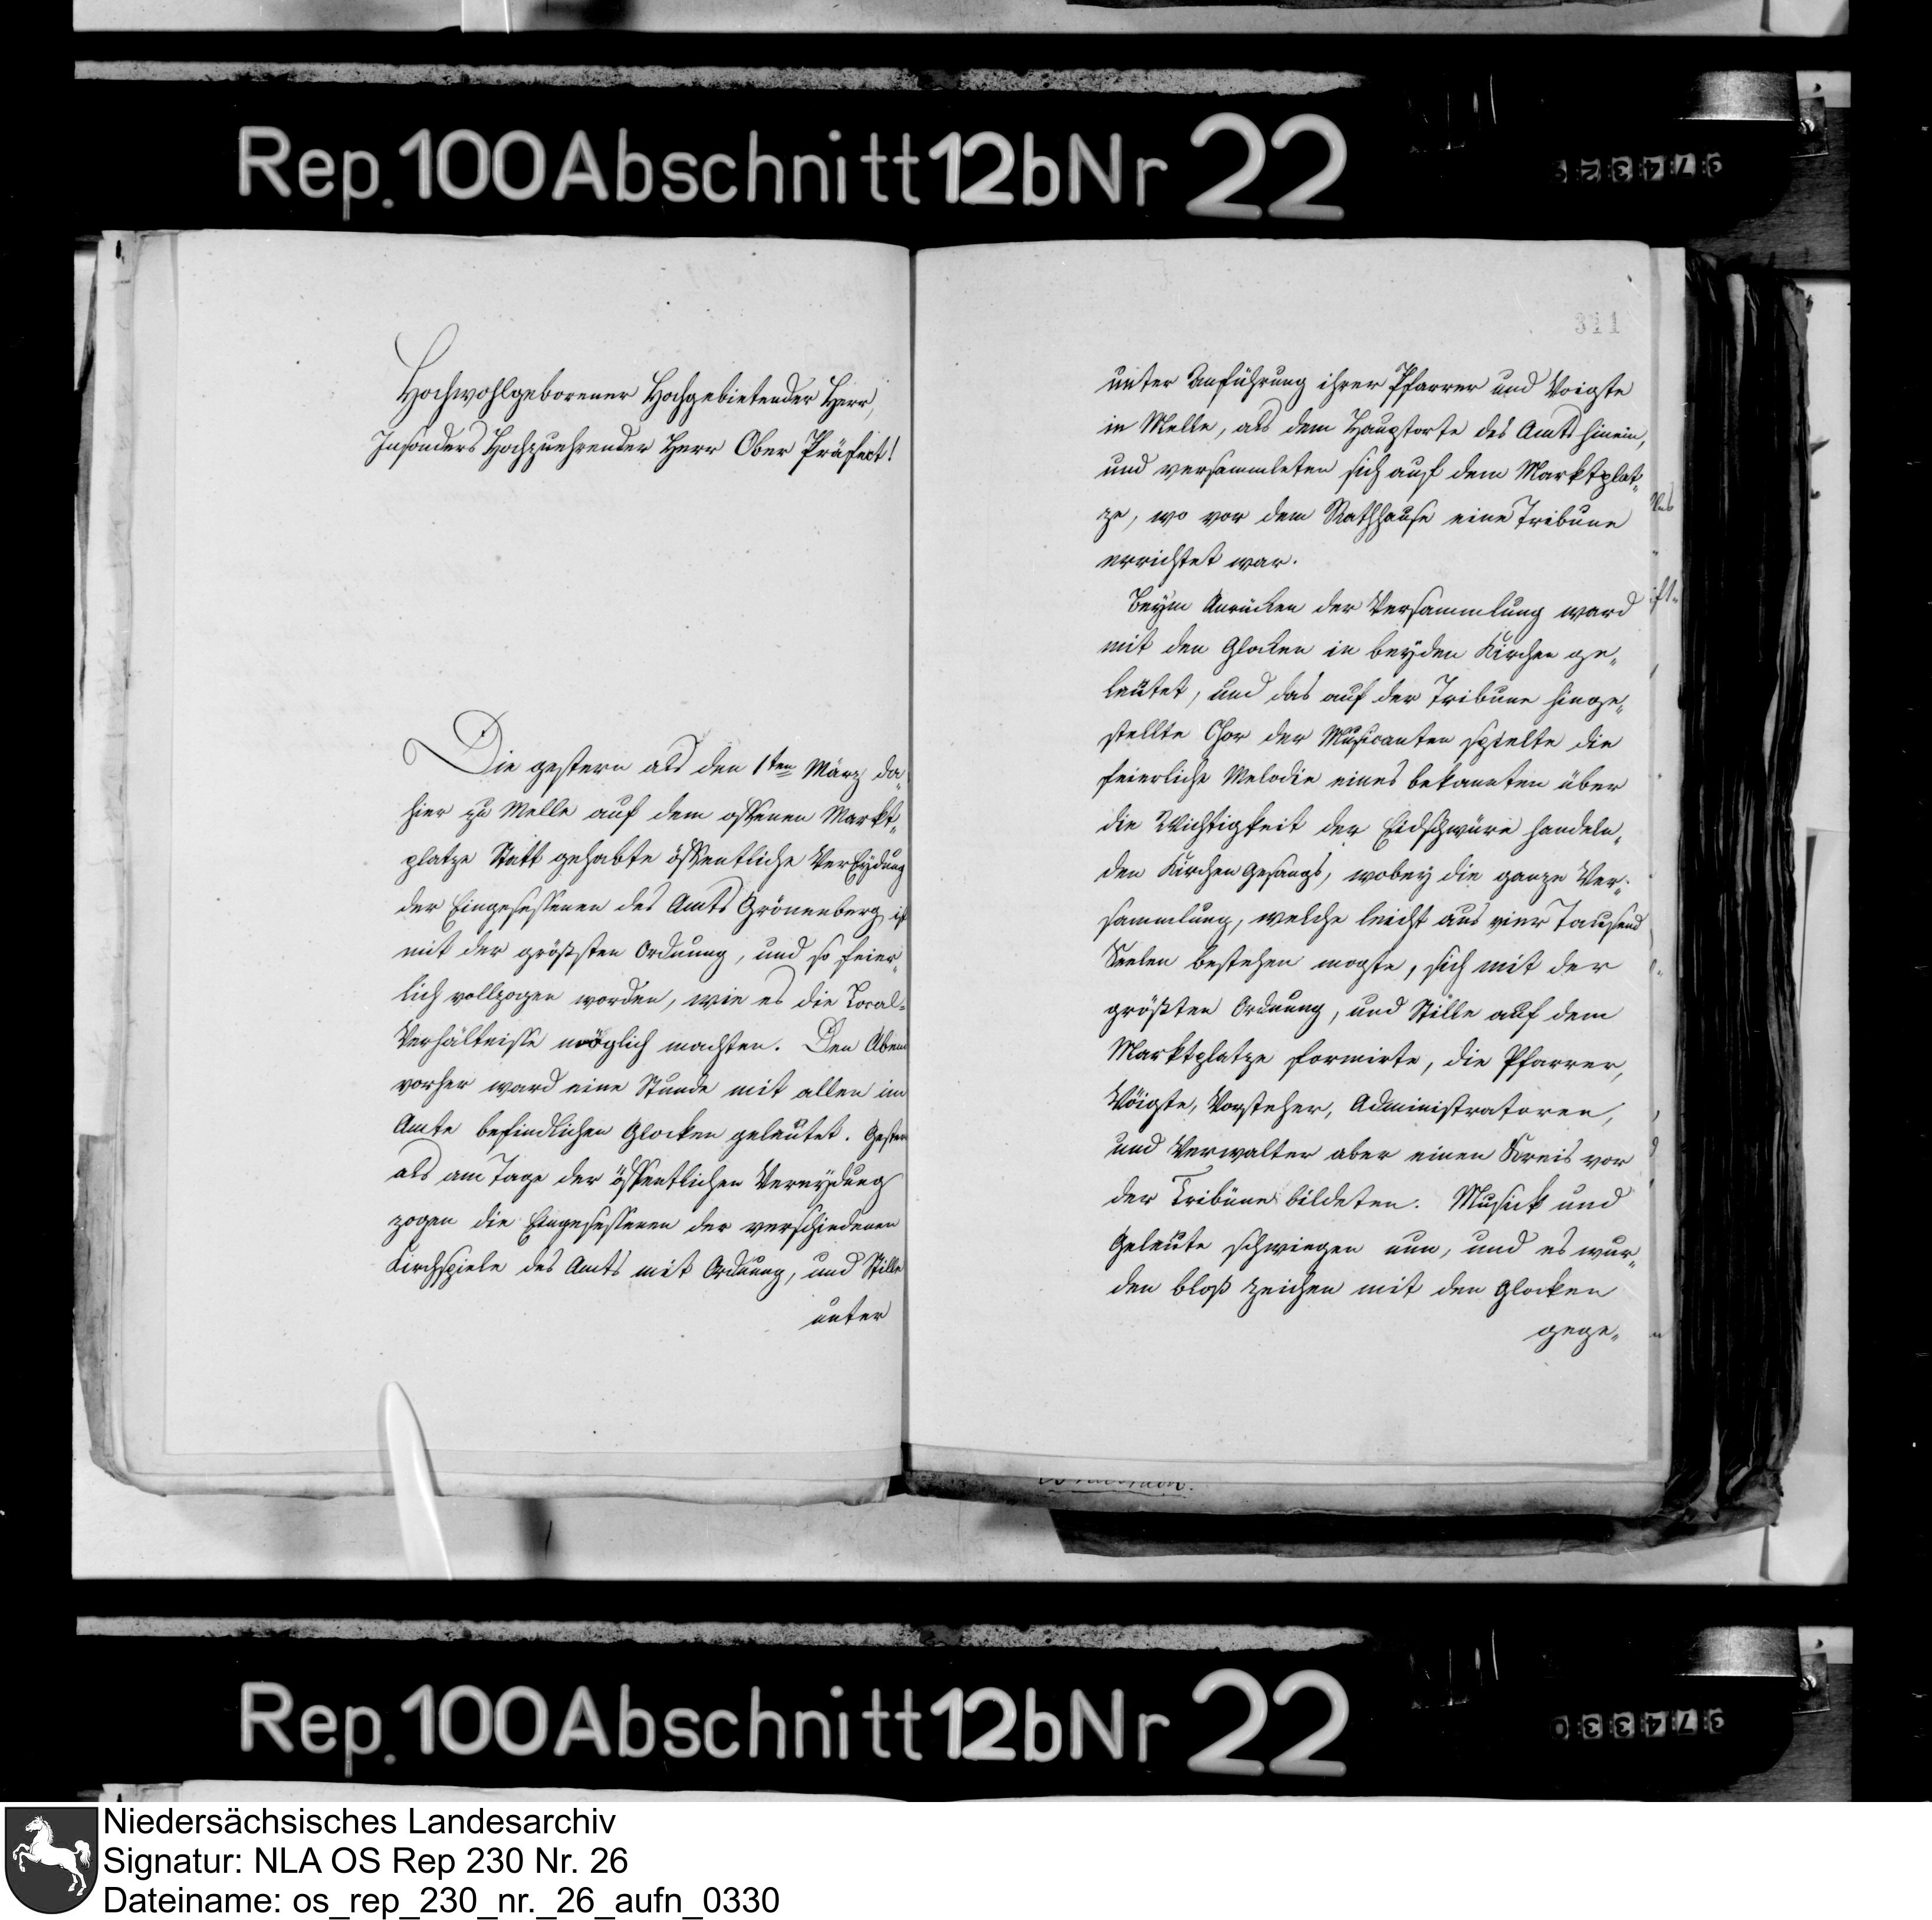 Rep. 100 Abschnitt 12b Nr 22
Hochwohlgeborener Hochgebietender Herr,
Insonders Hochzuehrender Herr Ober Präfect!
Die gestern als den 1ten März da„
hier zu Melle auf dem offenen Markt„
platze Statt gehabte öffentliche VerEydung
der Eingesessenen des Amts Grönenberg ist
mit der größsten Ordnung, und so feier„
lich vollzogen worden, wie es die Local„
Verhältnisse möglich machten. Den Abend
vorher ward eine Stunde mit allen im
Amte befindlichen Glocken geleutet. Gestern
als am Tage der öffentlichen Vereydung
zogen die Eingesessenen der verschiedenen
Kirchspiele des Amts mit Ordnung, und Stille
unter
311
unter Anführung ihrer Pfarrer und Voigte
in Melle, als dem Hauptorte des Amts hinein,
und versammleten sich auf dem Marktplat„
ze, wo vor dem Rathhause eine Tribune
errichtet war.
Beym Anrücken der Versammlung ward
mit den Glocken in beyden Kirchen ge„
leutet, und das auf der Tribune hinge„
stellte Chor der Musicanten spielte die
feierliche Melodie eines bekannten über
die Wichtigkeit der Eidschwüre handeln„
den Kirchen Gesangs, wobey die ganze Ver„
sammlung, welche leicht aus vier Tausend
Seelen bestehen mogte, sich mit der
größten Ordnung, und Stille auf dem
Marktplatze formirte, die Pfarrer,
Vöigte, Vorsteher, Administratoren,
und Verwalter aber einen Kreis vor
der Tribüne bildeten. Musick und
Geleute schwiegen nun, und es wur„
den bloß Zeichen mit den Glocken
gege„
Rep. 100 Abschnitt 12b Nr 22
Niedersächsisches Landesarchiv
Signatur: NLA OS Rep 230 Nr. 26
Dateiname: os_rep_230_nr._26_aufn_0330